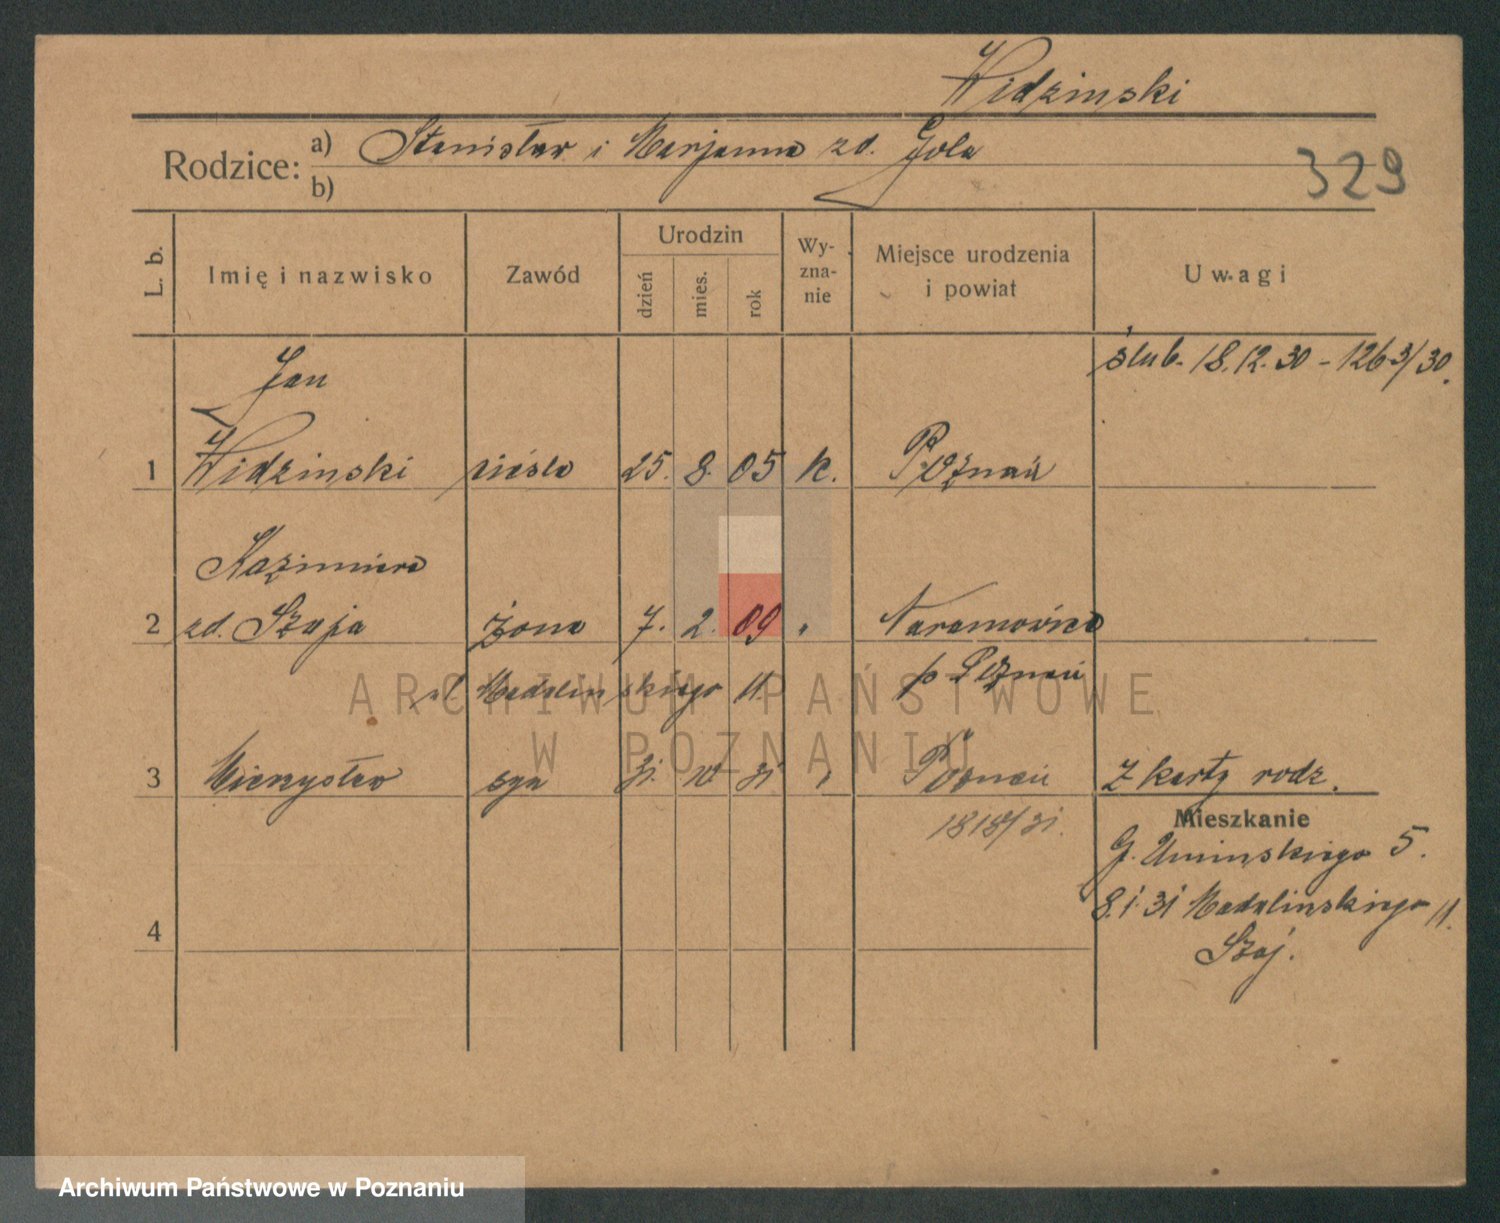 Widzinski
Rodzice: a) Stanisław i Marjanna zd. Gola
b)
329
L. b.
Imię i nazwisko
Zawód
Urodzin
dzień
mies.
rok
Wy-
zna-
nie
Miejsce urodzenia
i powiat
Uwagi
ślub. 18.12.30 - 1263/30.
Jan
1 Widzinski cieśla 25. 8. 05 k. Poznań
Kazimiera
2 zd. Szaja żona 7. 2. 09 " Naramowice
p Poznań
ul. Madalinskiego 11.
ARCHIWUM PAŃSTWOWE
W POZNANIU
3 Mieczysław syn 31. 31 " Poznań z karty rodz.
1818/31.
Mieszkanie
G. Uminskiego 5.
8.1.31 Madalinskiego 11.
4
Szaj.
Archiwum Państwowe w Poznaniu